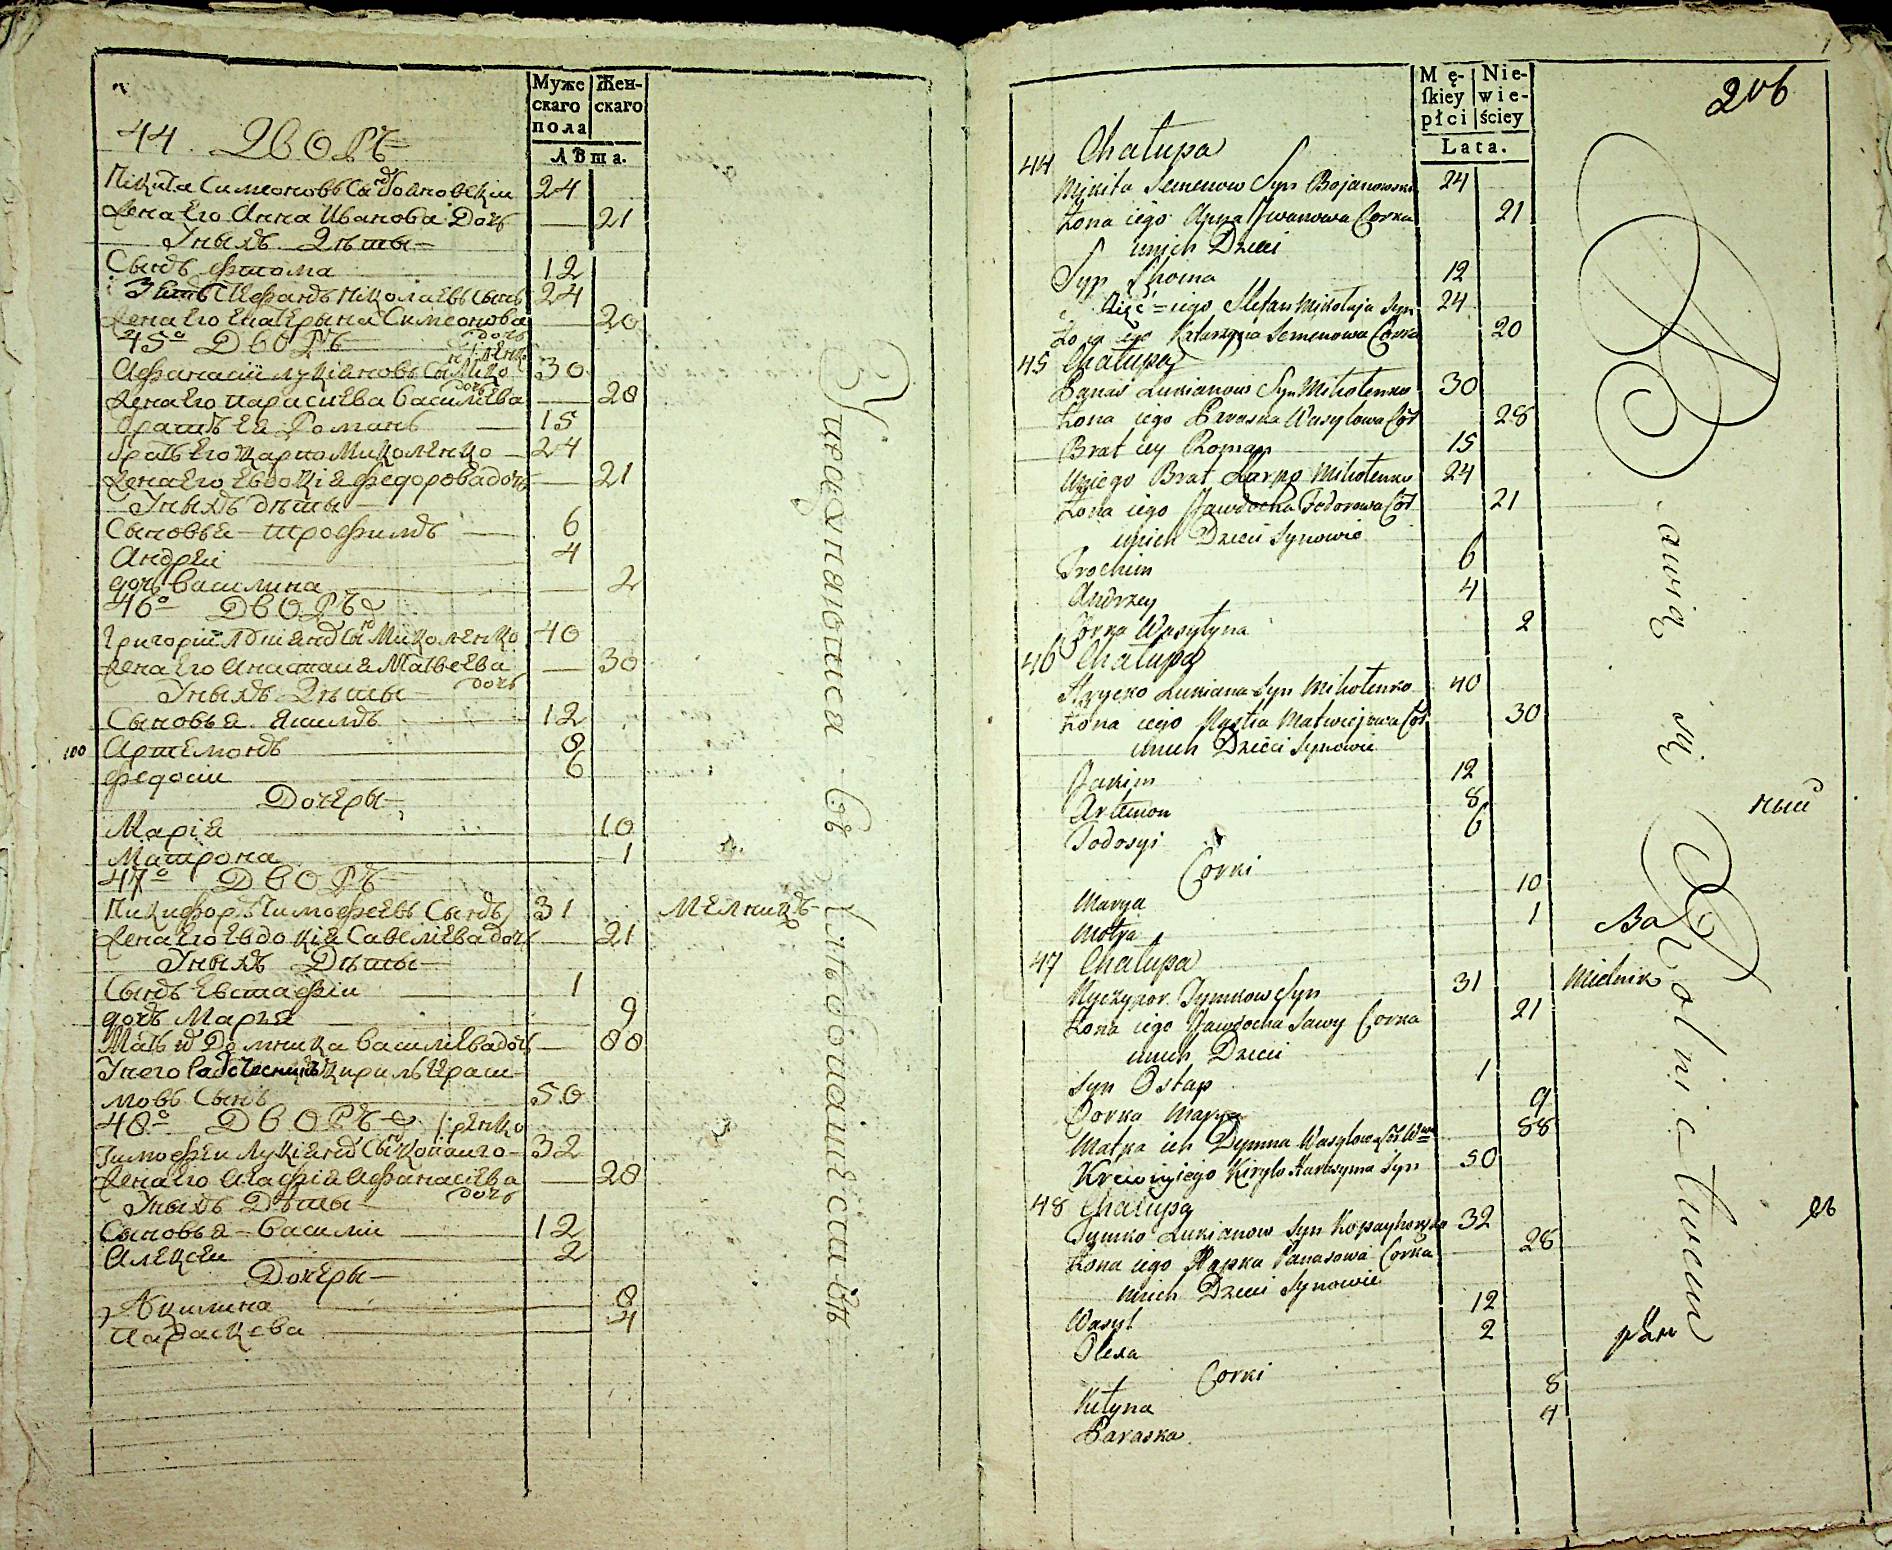 Муже
скаго
пола
Жен-
скаго
Лѣта.
44 Дворъ
Никита Симеоновъ Сынъ Бояновскіи 24
Жена Его Анна Иванова Дочь 21
Унихъ Дѣти
Сынъ Фтома 12
Зять Стефанъ Николаевъ Сынъ 24
Жена Его Екатерына Симеонова дочь 20
45о Дворъ
Афанасіи лукіановъ Сынъ Мико ленко 30
Жена Его параскева Василіева дочь 28
братъ Ея Романъ 15
братъ Его карпо Миколенко 24
Жена Его Евдокія Федорова дочь 21
Унихъ дѣти
Сыновья трофимъ 6
Андреи 4
дочь Василина 2
46о Дворъ
Григоріи Лукіанъ Сынъ Миколенко 40
Жена Его Анастасія Матвеева дочь 30
Унихъ Дѣти
Сыновья якимъ 12
100 Артемонъ 8
Федосіи 6
Дочеры
Марія 10
Матрона 1
47о Дворъ
Никифоръ Тимофеевъ Сынъ 31 Мелникъ
Жена Его Евдокія Савеліева дочь 21
Унихъ Дѣти
Сынъ Евстафіи 1
дочь Марья 9
Мать Домника Василіева дочь 88
Унего кирилъ Ераси-
мовъ Сынъ 50
48о Дворъ
Тимофеи Лукіанъ Сынъ копаиго- ренко 32
Жена Его Агафія Афанасіева дочь 28
Унихъ Дѣти
Сыновья Василіи 12
Алексеи 2
Дочеры
Акилина 8
Параскева 4
Уираяхнаныиса
Mę-
ſkiey
płci
Nie-
wie-
ściey
Lata.
206
44 Chałupa
Mikita Semenow Syn Bojanowski 24
Żona iego Anna Iwanowa Corka 21
unich Dzieci
Syn Thoma 12
Zięć iego Stefan Mikołaja Syn 24
Żona iego Katarzyna Semenowa Corka 20
45 Chałupa
Panas Lukianow Syn Mikołenko 30
Żona iego Paraska Wasylowa Cor 28
Brat iey Roman 15
Uniego Brat Karpo Mikołenko 24
Żona iego Jawdocha Fedorowa Cor 21
unich Dzieci Synowie
Trochim 6
Andrzey 4
Corka Wasylyna 2
46 Chałupa
Hrycko Lukiana Syn Mikołenko 40
Żona iego Nastia Matwiejowa Cor 30
unich Dzieci Synowie
Jakim 12
Artemon 8
Todosyi 6
Corki
Marya 10
Motra 1
47 Chałupa
Nyczypor Tymkow Syn 31 Mielnik
Żona iego Jawdocha Sawy Corka 21
unich Dzieci
Syn Ostap 1
Corka Marya 9
Matka ich Dymna Wasylowa Cor Wwa 88
Krewny iego Kirylo Harasyma Syn 50
48 Chałupa
Tymko Lukianow Syn Kopayhorenko 32
Żona iego Hapka Panasowa Corka 28
unich Dzieci Synowie
Wasyl 12
Olexa 2
Corki
Kiłyna 8
Paraska 4
ный